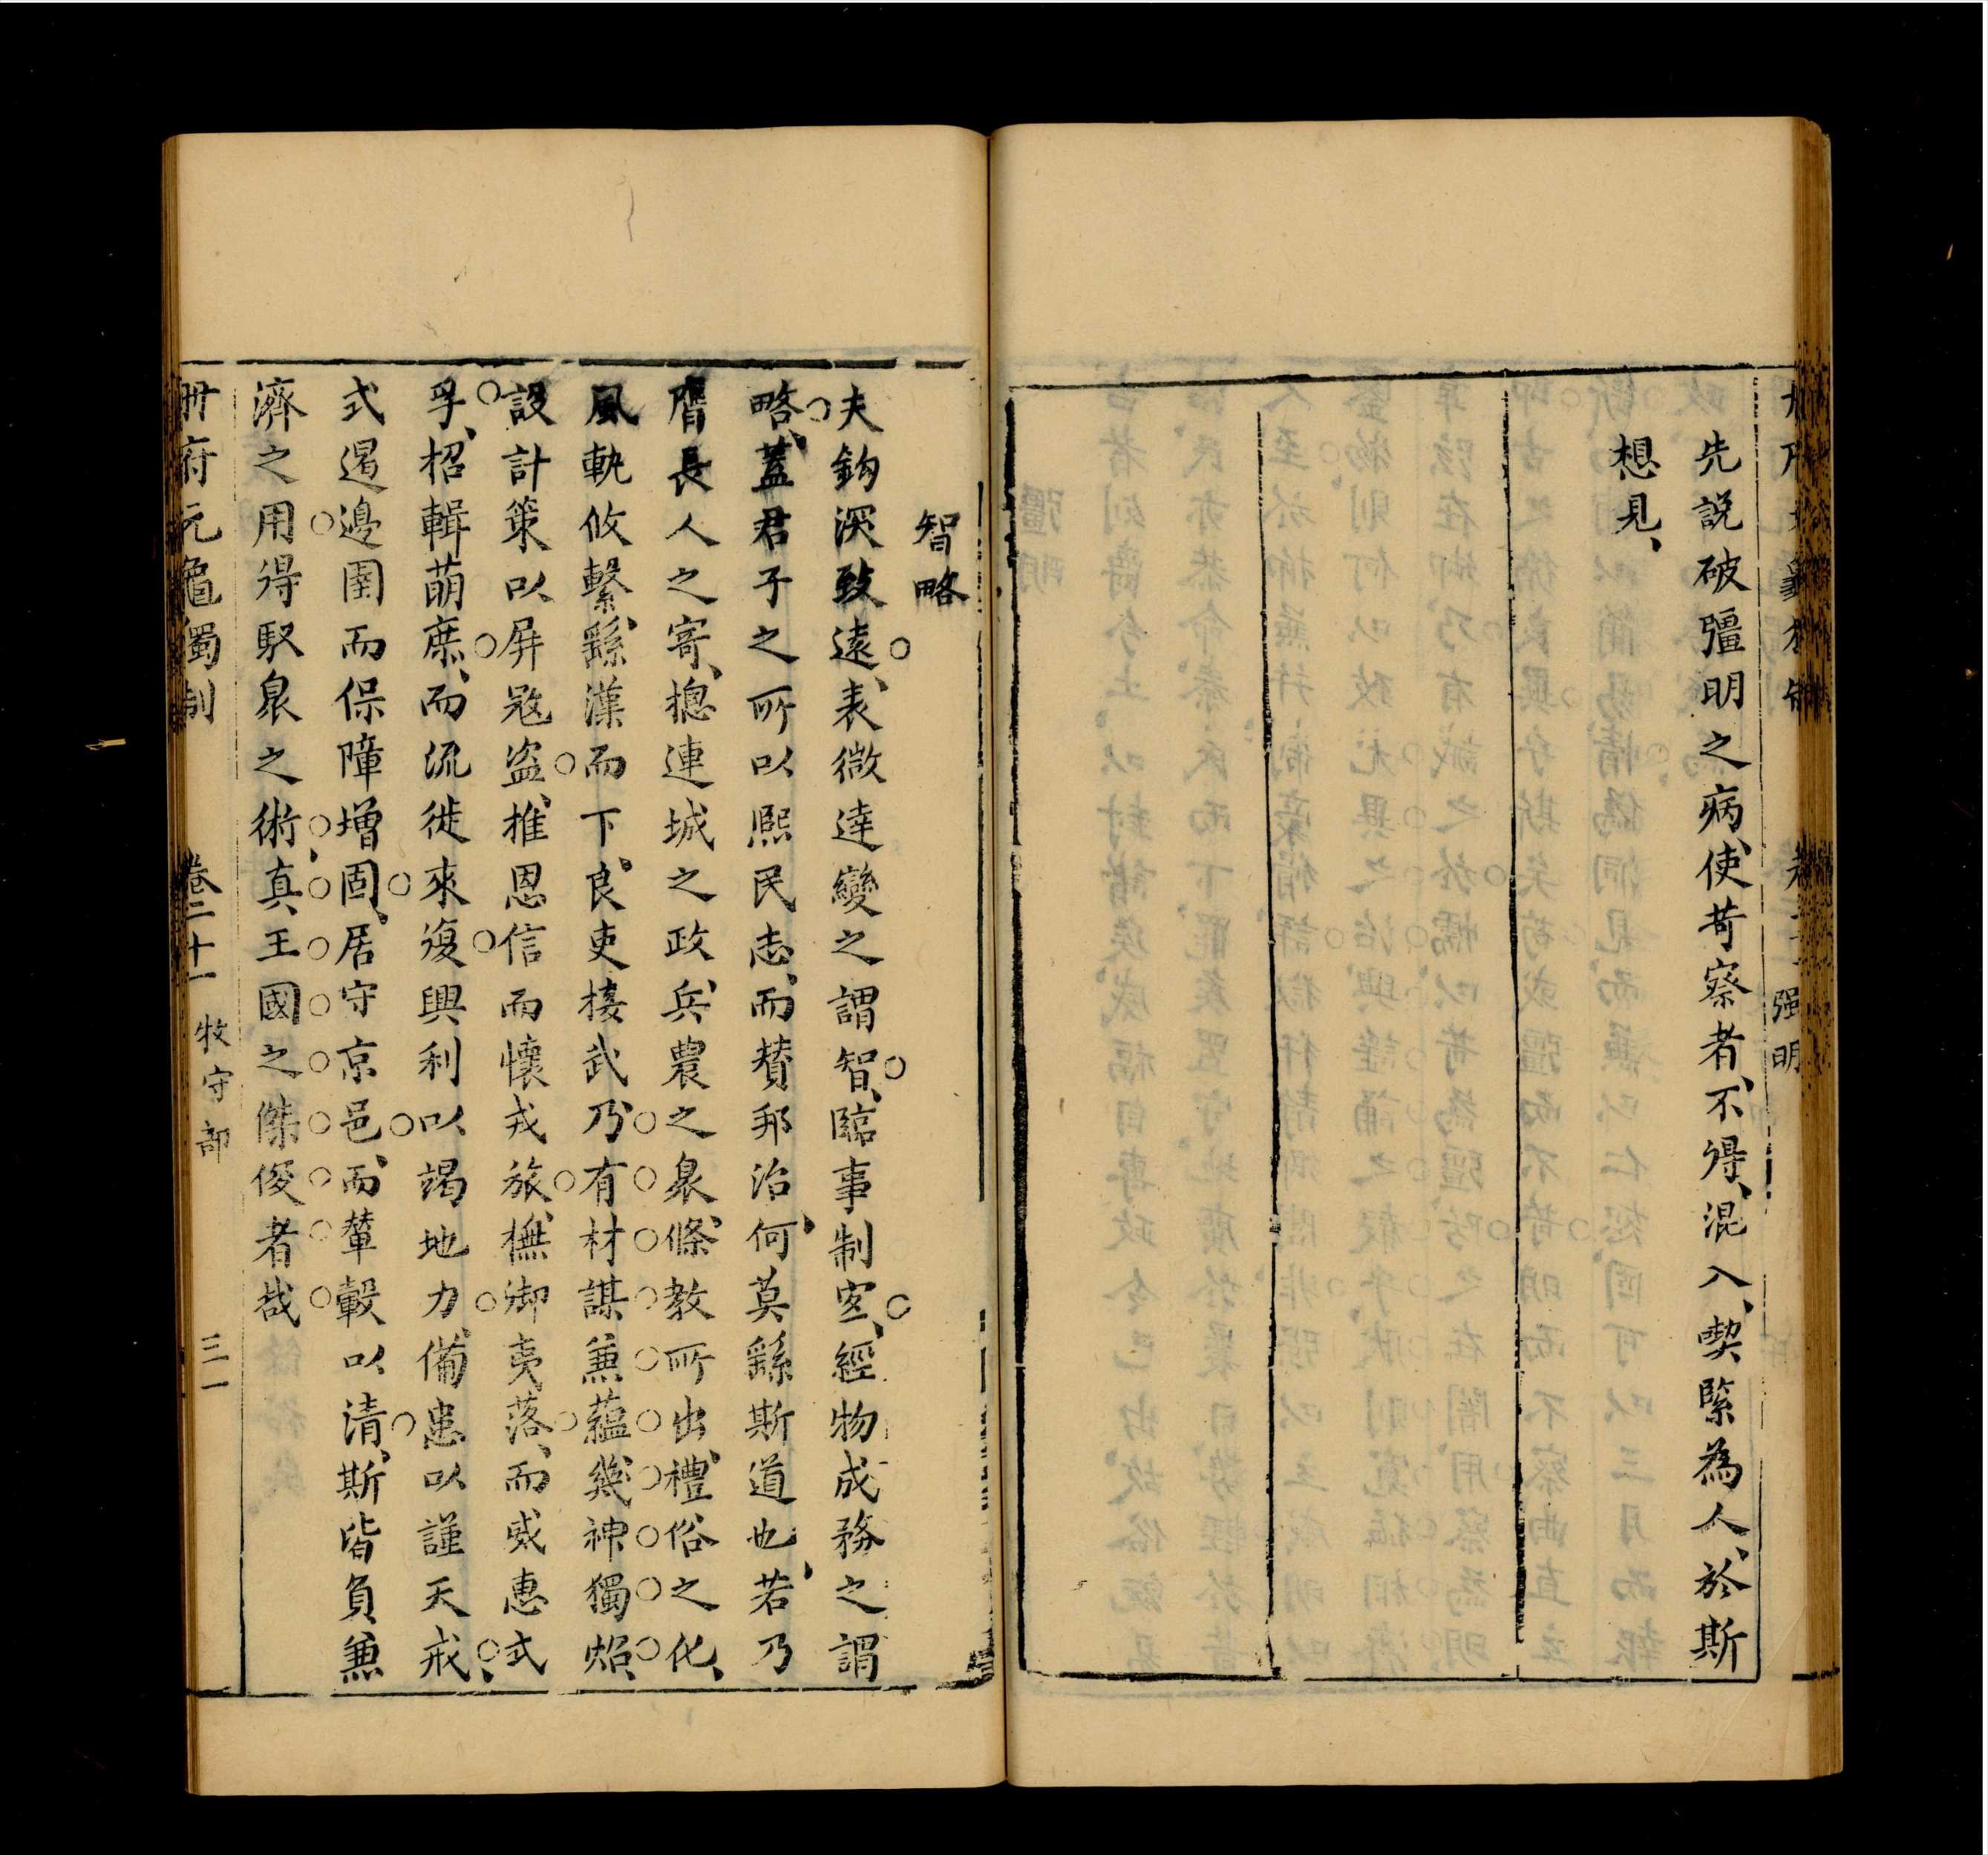 先說破彊明之病、使苛察者、不得、混入、喫緊為人、於斯
想見、
強明
智略
夫鈎深致遠、表微達變之謂智、臨事制宜、經物成務之謂
略、蓋君子之所以熙民志、而賛邦治何莫繇斯道也、若乃
膺長人之寄、摠連城之政、兵農之衆、條教所出、禮俗之化、
風軌攸繫、繇漢而下、良吏接武、乃有材謀兼蘊、幾神獨炤、
設計策以屏寇盜、推恩信而懷戎旅、撫御夷落、而威惠式
孚、招輯萌庶、而流徙來復、興利以竭地力、備患以謹天戒、
式遏邊圉而保障增固、居守京邑、而輦轂以清、斯皆負兼
濟之用得馭衆之術、真王國之傑俊者哉
冊府元龜獨制 卷二十一 牧守部 三一